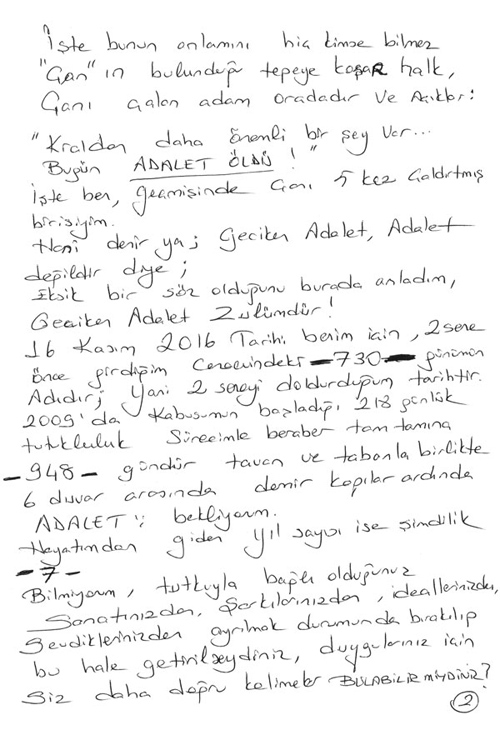 İşte bunun anlamını hiç kimse bilmez
"Çan" ın bulunduğu tepeye koşar halk,
Çanı çalan adam oradadır ve Açıklar:
"Kraldan daha önemli bir şey var...
Bugün ADALET ÖLDÜ!"
İşte ben, geçmişinde Çanı 5 kez çaldırtmış
birisiyim.
Hani denir ya; Geciken Adalet, Adalet
değildir diye;
Eksik bir söz olduğunu burada anladım,
Geciken Adalet Zulümdür!
16 Kasım 2016 Tarihi benim için, 2 sene
önce girdiğim Cenderindeki -730- günümün
Adıdır; Yani 2 seneyi doldurduğum tarihtir.
2009'da Kabusumun başladığı 218 günlük
tutukluluk Sürecimle beraber tam tamına
-948- gündür tavan ve tabanla birlikte
6 duvar arasında demir kapılar ardında
ADALET'i bekliyorum.
Hayatımdan giden yıl sayısı ise şimdilik
-7-
Bilmiyorum, tutkuyla bağlı olduğunuz
Sanatınızdan, Şarkılarınızdan, ideallerinizden,
Sevdiklerinizden ayrılmak durumunda bırakılıp
bu hale getirilseydiniz, duygularınız için
Siz daha doğru kelimeler BULABİLİR MİYDİNİZ?
2